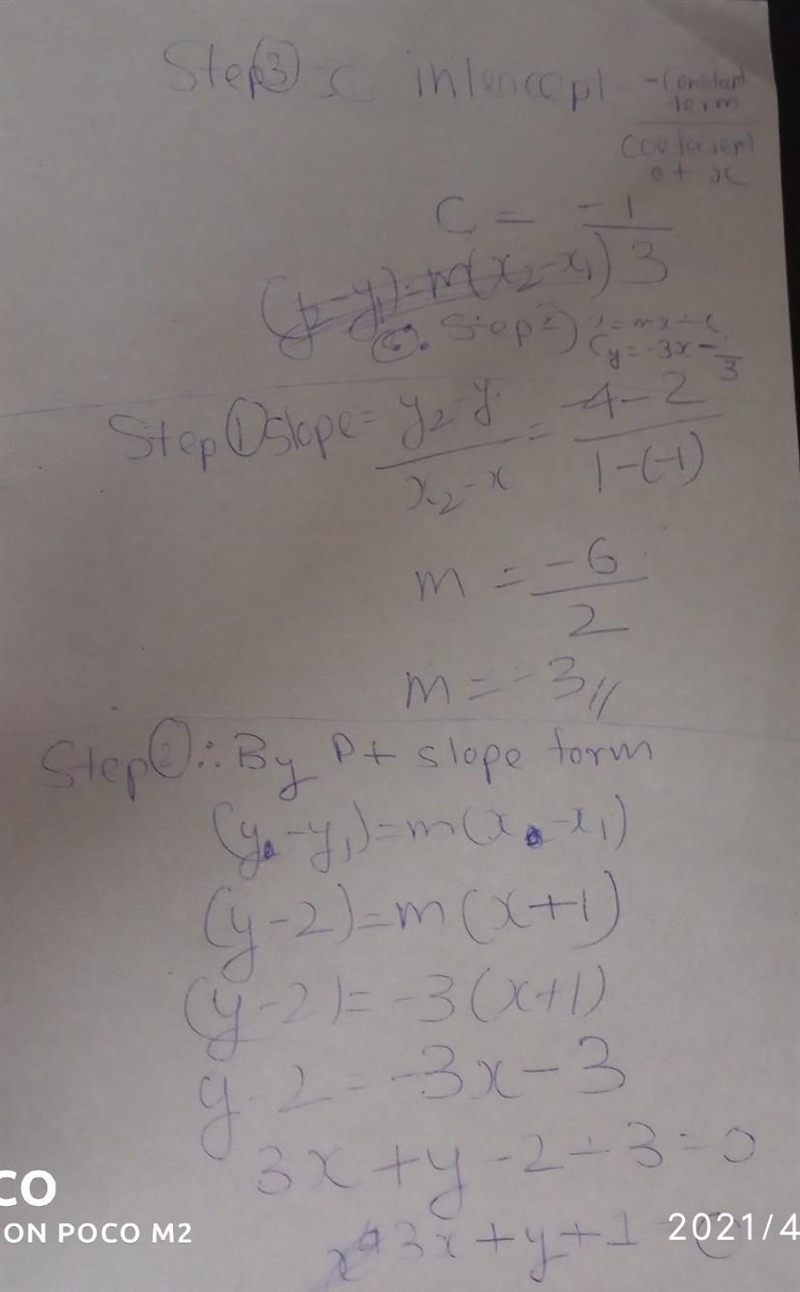 Step ③ x intercept -Constant term / Coeficient of x
C = -1/3
(y₂-y₁)=m(x₂-x₁)
Step y=mx+c
y=-3x-1/3
Step ① slope = y₂-y/x₂-x = -4-2/1-(-1)
m = -6/2
m = -3//
Step ② ∴ By Pt slope form
(y-y₁)=m(x-x₁)
(y-2)=m(x+1)
(y-2)=-3(x+1)
y-2=-3x-3
3x+y-2+3=0
3x+y+1
CO
ON POCO M2
2021/4